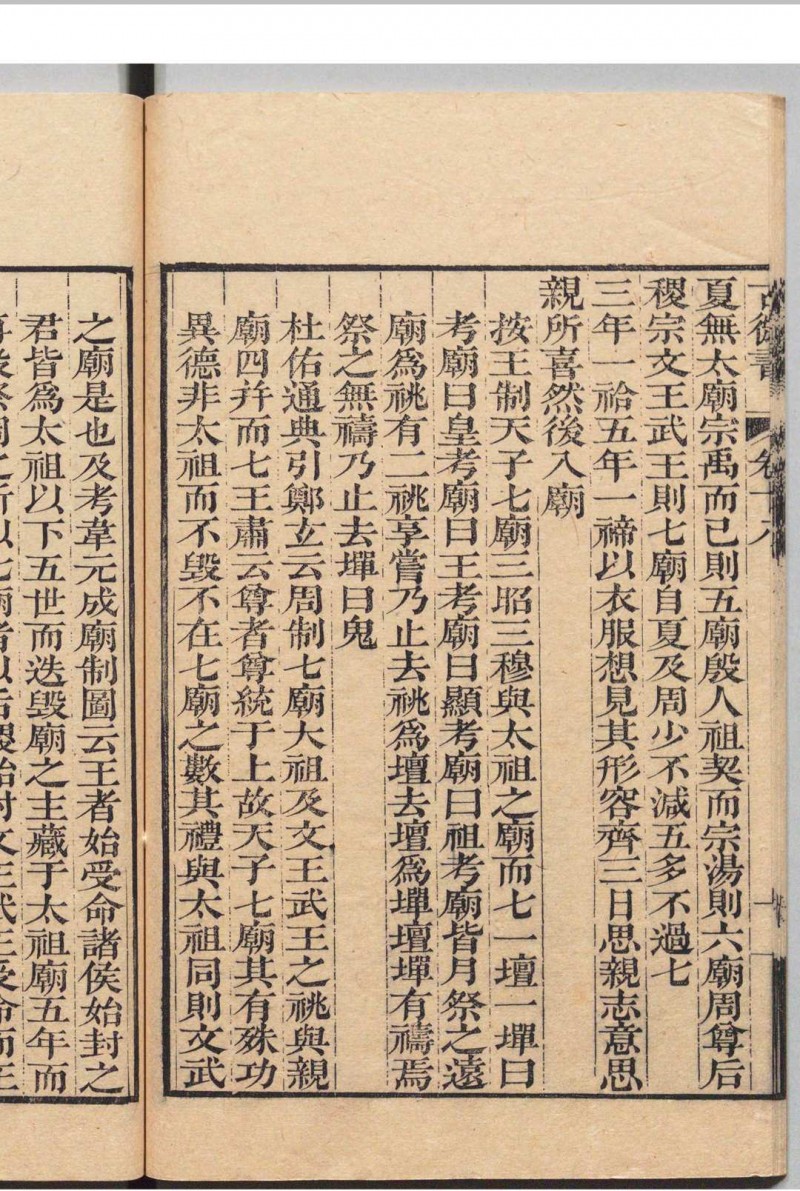 古微書 卷十八
夏無太廟宗禹而已則五廟殷人祖契而宗湯則六廟周尊后
稷宗文王武王則七廟自夏及周少不減五多不過七
三年一祫五年一禘以衣服想見其形容齊三日思親志意思
親所喜然後入廟
按王制天子七廟三昭三穆與太祖之廟而七一壇一墠曰
考廟曰皇考廟曰王考廟曰顯考廟曰祖考廟皆月祭之遠
廟爲祧有二祧享嘗乃止去祧爲壇去壇爲墠壇墠有禱焉
祭之無禱乃止去墠曰鬼
杜佑通典引鄭立云周制七廟大祖及文王武王之祧與親
廟四幷而七王肅云尊者尊統于上故天子七廟其有殊功
異德非太祖而不毀不在七廟之數其禮與太祖同則文武
之廟是也及考韋元成廟制圖云王者始受命諸侯始封之
君皆爲太祖以下五世而迭毀廟之主藏于太祖廟五年而